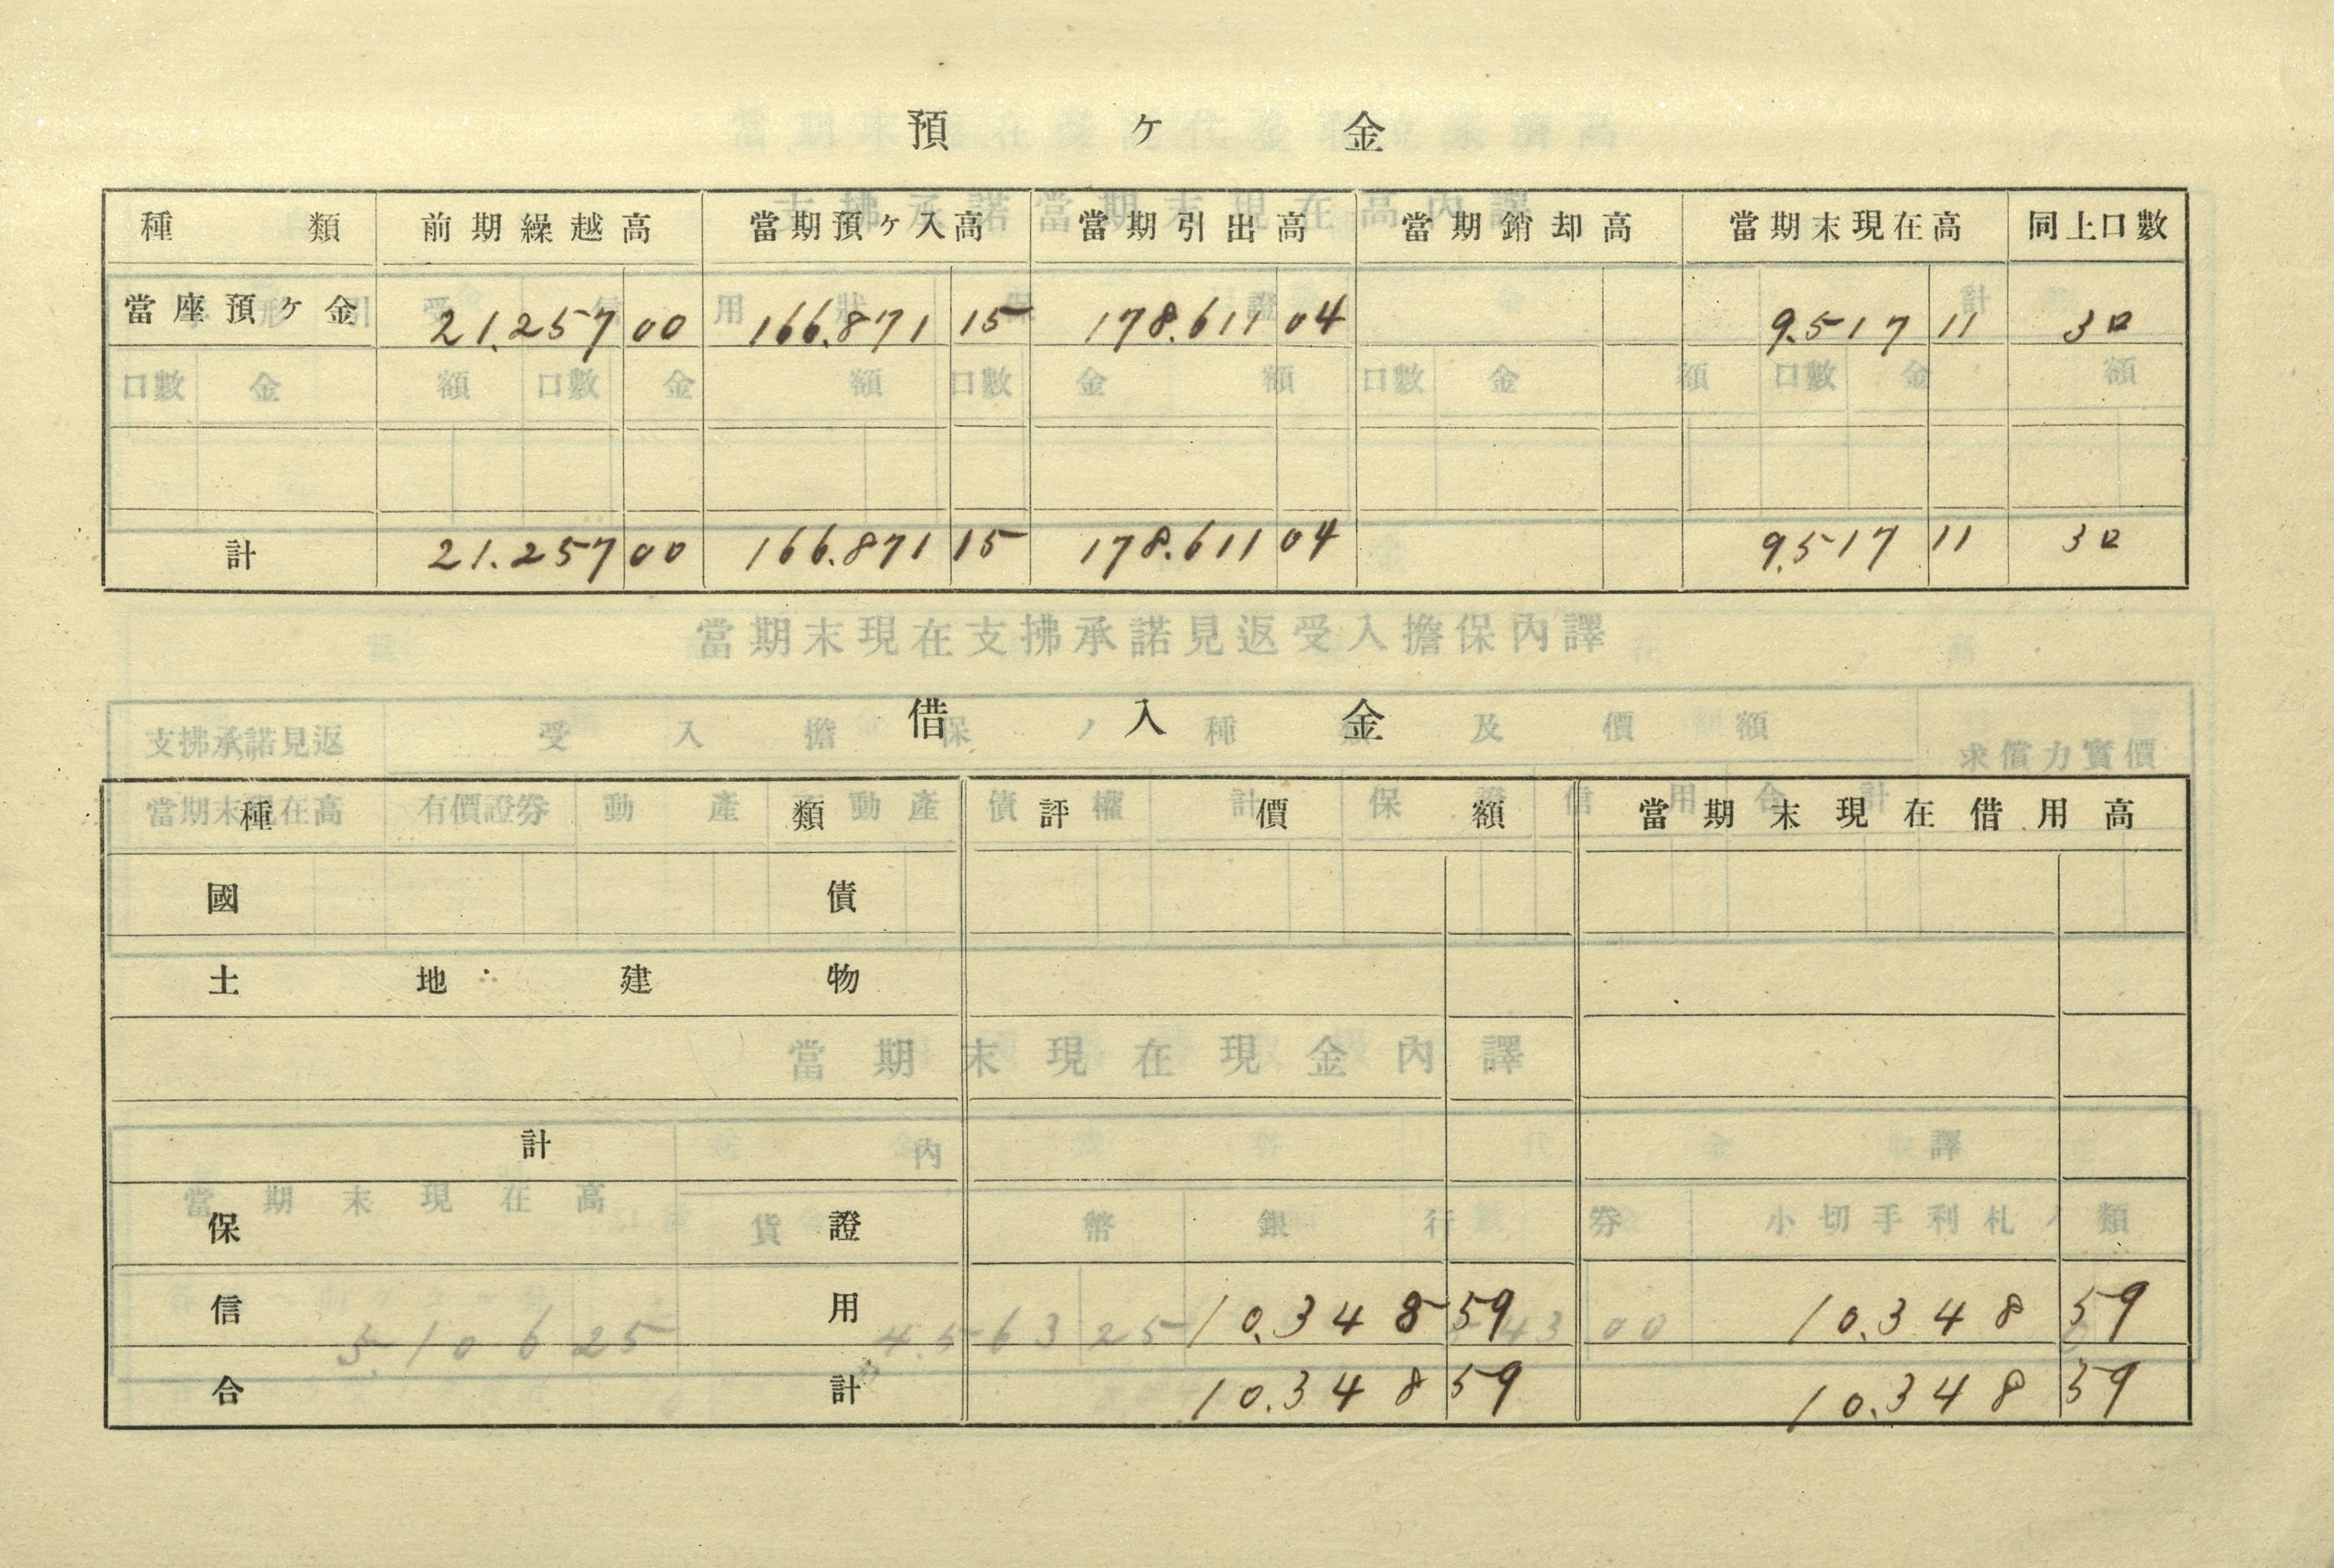 預ケ金
種類 前期繰越高 當期預ケ入高 當期引出高 當期銷却高 當期末現在高 同上口數
當座預ケ金 21.257 00 166.871 15 178.611 04 9.517 11 3口
計 21.257 00 166.871 15 178.611 04 9.517 11 3口
借入金
種類 評價額 當期末現在借用高
國債
土地建物
計
保證
信用 10.348 59 10.348 59
合計 10.348 59 10.348 59